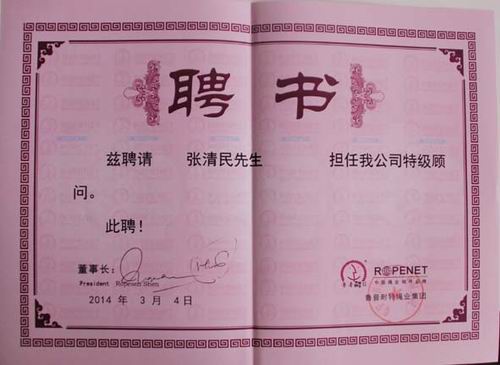 聘书
兹聘请 张清民先生 担任我公司特级顾
问。
此聘！
董事长：
President Ropenen Shen
2014 年 3 月 4 日
ROPENET
鲁普耐特绳业集团